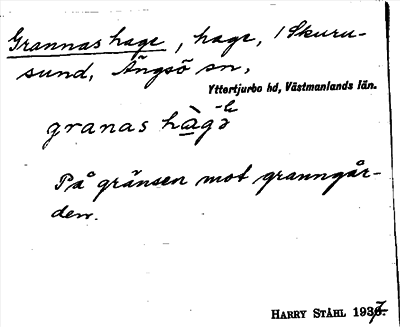 Grannas hage, hage, i Skuru-
sund, Ängsö sn,
Yttertjurbo hd, Västmanlands län.
granas hàgə
På gränsen mot granngår-
den.
HARRY STÅHL 1937.